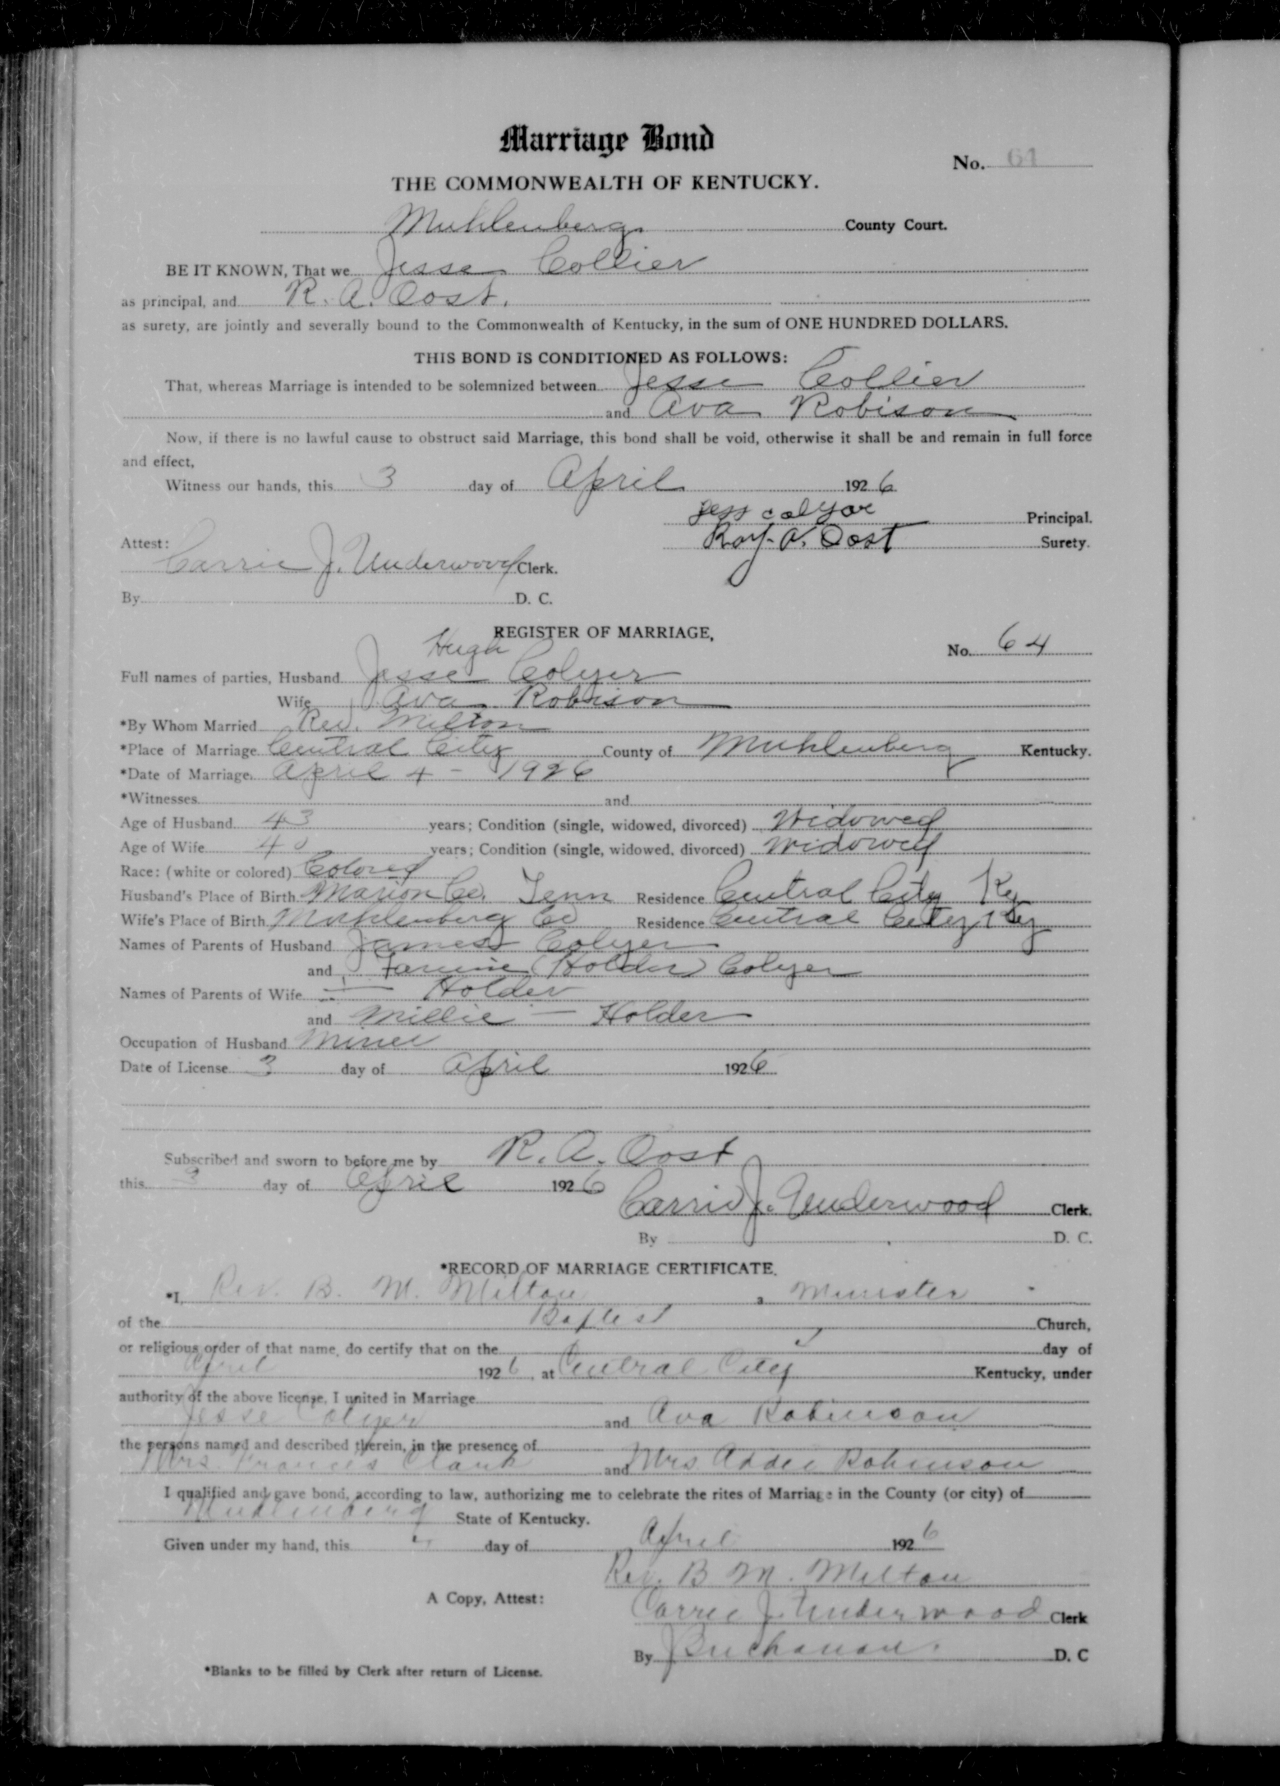 Marriage Bond
No. 61
THE COMMONWEALTH OF KENTUCKY.
Muhlenberg County Court.
BE IT KNOWN, That we Jesse Collier
as principal, and R. A. Oost.
as surety, are jointly and severally bound to the Commonwealth of Kentucky, in the sum of ONE HUNDRED DOLLARS.
THIS BOND IS CONDITIONED AS FOLLOWS:
That, whereas Marriage is intended to be solemnized between Jesse Collier
and Ava Robison
Now, if there is no lawful cause to obstruct said Marriage, this bond shall be void, otherwise it shall be and remain in full force
and effect,
Witness our hands, this 3 day of April 1926
Jess Colyar Principal.
Roy. A. Oost Surety.
Attest:
Carrie J. Underwood Clerk.
By D. C.
REGISTER OF MARRIAGE,
Hugh
No. 64
Full names of parties, Husband Jesse Colyer
Wife Ava Robison
*By Whom Married Rev. Milton
*Place of Marriage Central City County of Muhlenberg Kentucky.
*Date of Marriage. April 4 - 1926
*Witnesses and
Age of Husband 43 years; Condition (single, widowed, divorced) Widowed
Age of Wife 40 years; Condition (single, widowed, divorced) Widowed
Race: (white or colored) Colored
Husband's Place of Birth Marion Co. Tenn Residence Central City Ky
Wife's Place of Birth Muhlenberg Co Residence Central City Ky
Names of Parents of Husband James Colyer
and Fannie (Holder) Colyer
Names of Parents of Wife — Holder
and Millie — Holder
Occupation of Husband Miner
Date of License 3 day of April 1926
Subscribed and sworn to before me by R. A. Oost
this 3 day of April 1926
Carrie J. Underwood Clerk.
By D. C.
*RECORD OF MARRIAGE CERTIFICATE.
*I, Rev. B. M. Milton, a Minister
of the Baptist Church,
or religious order of that name, do certify that on the day of
April 1926, at Central City Kentucky, under
authority of the above license, I united in Marriage
Jesse Colyer and Ava Robinson
the persons named and described therein, in the presence of
Mrs. Francis Clark and Mrs Addie Robinson
I qualified and gave bond, according to law, authorizing me to celebrate the rites of Marriage in the County (or city) of
Muhlenberg State of Kentucky.
Given under my hand, this day of April 1926
Rev. B M. Milton
A Copy, Attest:
Carrie J. Underwood Clerk
By Buchanan. D. C
*Blanks to be filled by Clerk after return of License.